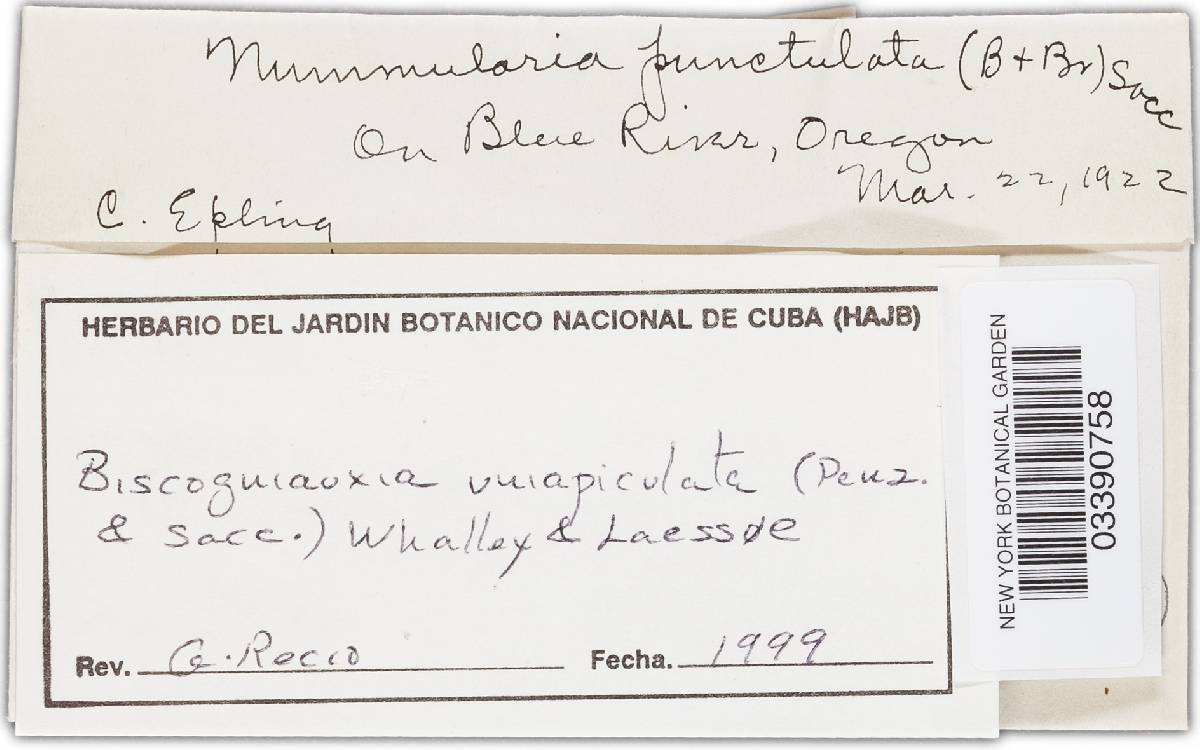 Nummularia punctulata (B + Br) Sacc
On Blue River, Oregon
Mar. 22, 1922
C. Epling
HERBARIO DEL JARDIN BOTANICO NACIONAL DE CUBA (HAJB)
Biscogniauxia uniapiculata (Penz.
& Sacc.) Whalley & Laessøe
Rev. G. Recio
Fecha. 1999
NEW YORK BOTANICAL GARDEN
03390758